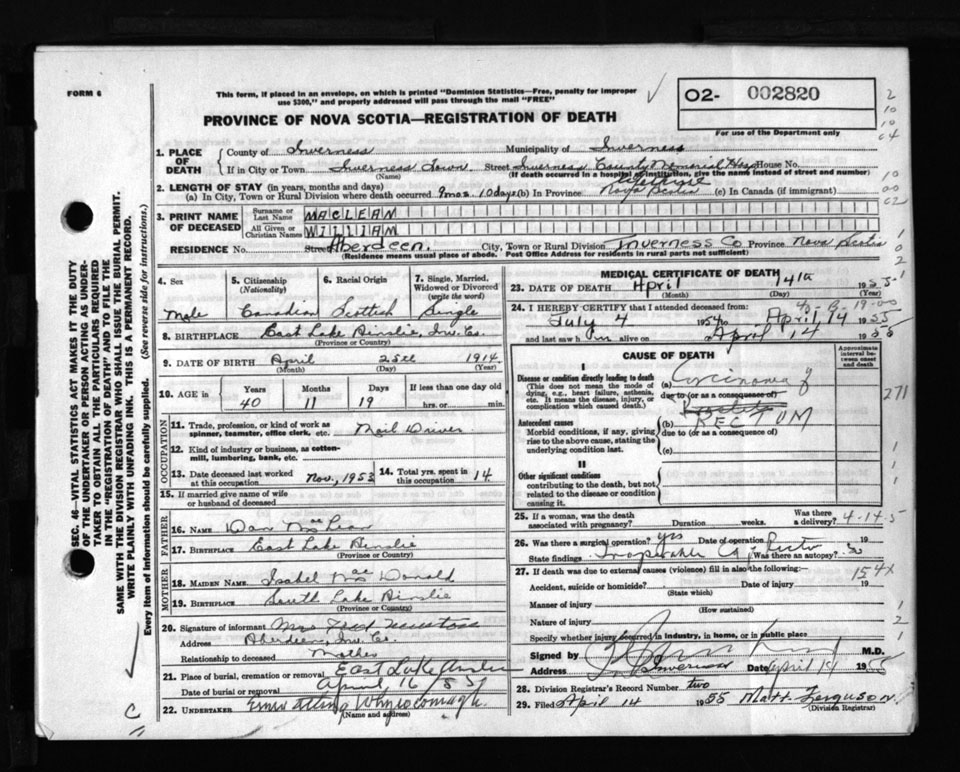 FORM 6
This form, if placed in an envelope, on which is printed "Dominion Statistics—Free, penalty for improper
use $300," and properly addressed will pass through the mail "FREE"
O2- 002820
For use of the Department only
PROVINCE OF NOVA SCOTIA—REGISTRATION OF DEATH
1. PLACE OF DEATH
County of Inverness Municipality of Inverness
If in City or Town Inverness Town Street Inverness County Memorial Hosp House No.
(Name) (If death occurred in a hospital or institution, give the name instead of street and number)
2. LENGTH OF STAY (in years, months and days)
(a) In City, Town or Rural Division where death occurred 9 mos. 10 days (b) In Province Nova Scotia (c) In Canada (if immigrant)
3. PRINT NAME OF DECEASED
Surname or Last Name MACLEAN
All Given or Christian Names WILLIAM
RESIDENCE No. Street Aberdeen. City, Town or Rural Division Inverness Co Province Nova Scotia
(Residence means usual place of abode. Post Office Address for residents in rural parts not sufficient)
4. Sex Male
5. Citizenship (Nationality) Canadian
6. Racial Origin Scottish
7. Single, Married, Widowed or Divorced (write the word) Single
8. BIRTHPLACE East Lake Ainslie, Inv. Co.
(Province or Country)
9. DATE OF BIRTH April 25th 1914
(Month) (Day) (Year)
10. AGE in Years 40 Months 11 Days 19 If less than one day old hrs. or min.
OCCUPATION
11. Trade, profession, or kind of work as spinner, teamster, office clerk, etc. Mail Driver
12. Kind of industry or business, as cotton-mill, lumbering, bank, etc.
13. Date deceased last worked at this occupation Nov. 1953
14. Total yrs. spent in this occupation 14
15. If married give name of wife or husband of deceased
FATHER
16. NAME Dan MacLean
17. BIRTHPLACE East Lake Ainslie
(Province or Country)
MOTHER
18. MAIDEN NAME Isabel MacDonald
19. BIRTHPLACE South Lake Ainslie
(Province or Country)
20. Signature of informant Mrs
Address Aberdeen, Inv. Co.
Relationship to deceased Mother
21. Place of burial, cremation or removal East Lake Ainslie
Date of burial or removal April 16 / 55
22. UNDERTAKER Whycocomagh.
(Name and address)
MEDICAL CERTIFICATE OF DEATH
23. DATE OF DEATH April 14th 1955
(Month) (Day) (Year)
24. I HEREBY CERTIFY that I attended deceased from:
July 4 1954 to April 14 1955
and last saw him alive on April 14 1955
CAUSE OF DEATH
Approximate interval between onset and death
I
Disease or condition directly leading to death
(This does not mean the mode of dying, e.g., heart failure, asthenia, etc. It means the disease, injury, or complication which caused death.)
(a) Carcinoma of
due to (or as a consequence of)
Antecedent causes
Morbid conditions, if any, giving rise to the above cause, stating the underlying condition last.
(b) RECTUM
due to (or as a consequence of)
(c)
II
Other significant conditions
contributing to the death, but not related to the disease or condition causing it.
25. If a woman, was the death associated with pregnancy? Duration weeks. Was there a delivery? 4-14-5
26. Was there a surgical operation? yes Date of operation 19
State findings Inoperable Ca of Rectum Was there an autopsy?
27. If death was due to external causes (violence) fill in also the following:- 154x
Accident, suicide or homicide? Date of injury 19
(State which)
Manner of injury
(How sustained)
Nature of injury
Specify whether injury occurred in industry, in home, or in public place
Signed by M.D.
Address Inverness Date April 14 1955
28. Division Registrar's Record Number two
29. Filed April 14 1955 Matt. Ferguson
(Division Registrar)
SEC. 46—VITAL STATISTICS ACT MAKES IT THE DUTY
OF THE UNDERTAKER OR PERSON ACTING AS UNDER-
TAKER TO OBTAIN ALL THE PARTICULARS REQUIRED
IN THE "REGISTRATION OF DEATH" AND TO FILE THE
SAME WITH THE DIVISION REGISTRAR WHO SHALL ISSUE THE BURIAL PERMIT.
WRITE PLAINLY WITH UNFADING INK. THIS IS A PERMANENT RECORD.
Every item of information should be carefully supplied. (See reverse side for instructions.)
C
2
10
10
04
10
00
02
1
0
2
1
271
1
1
1
2
1